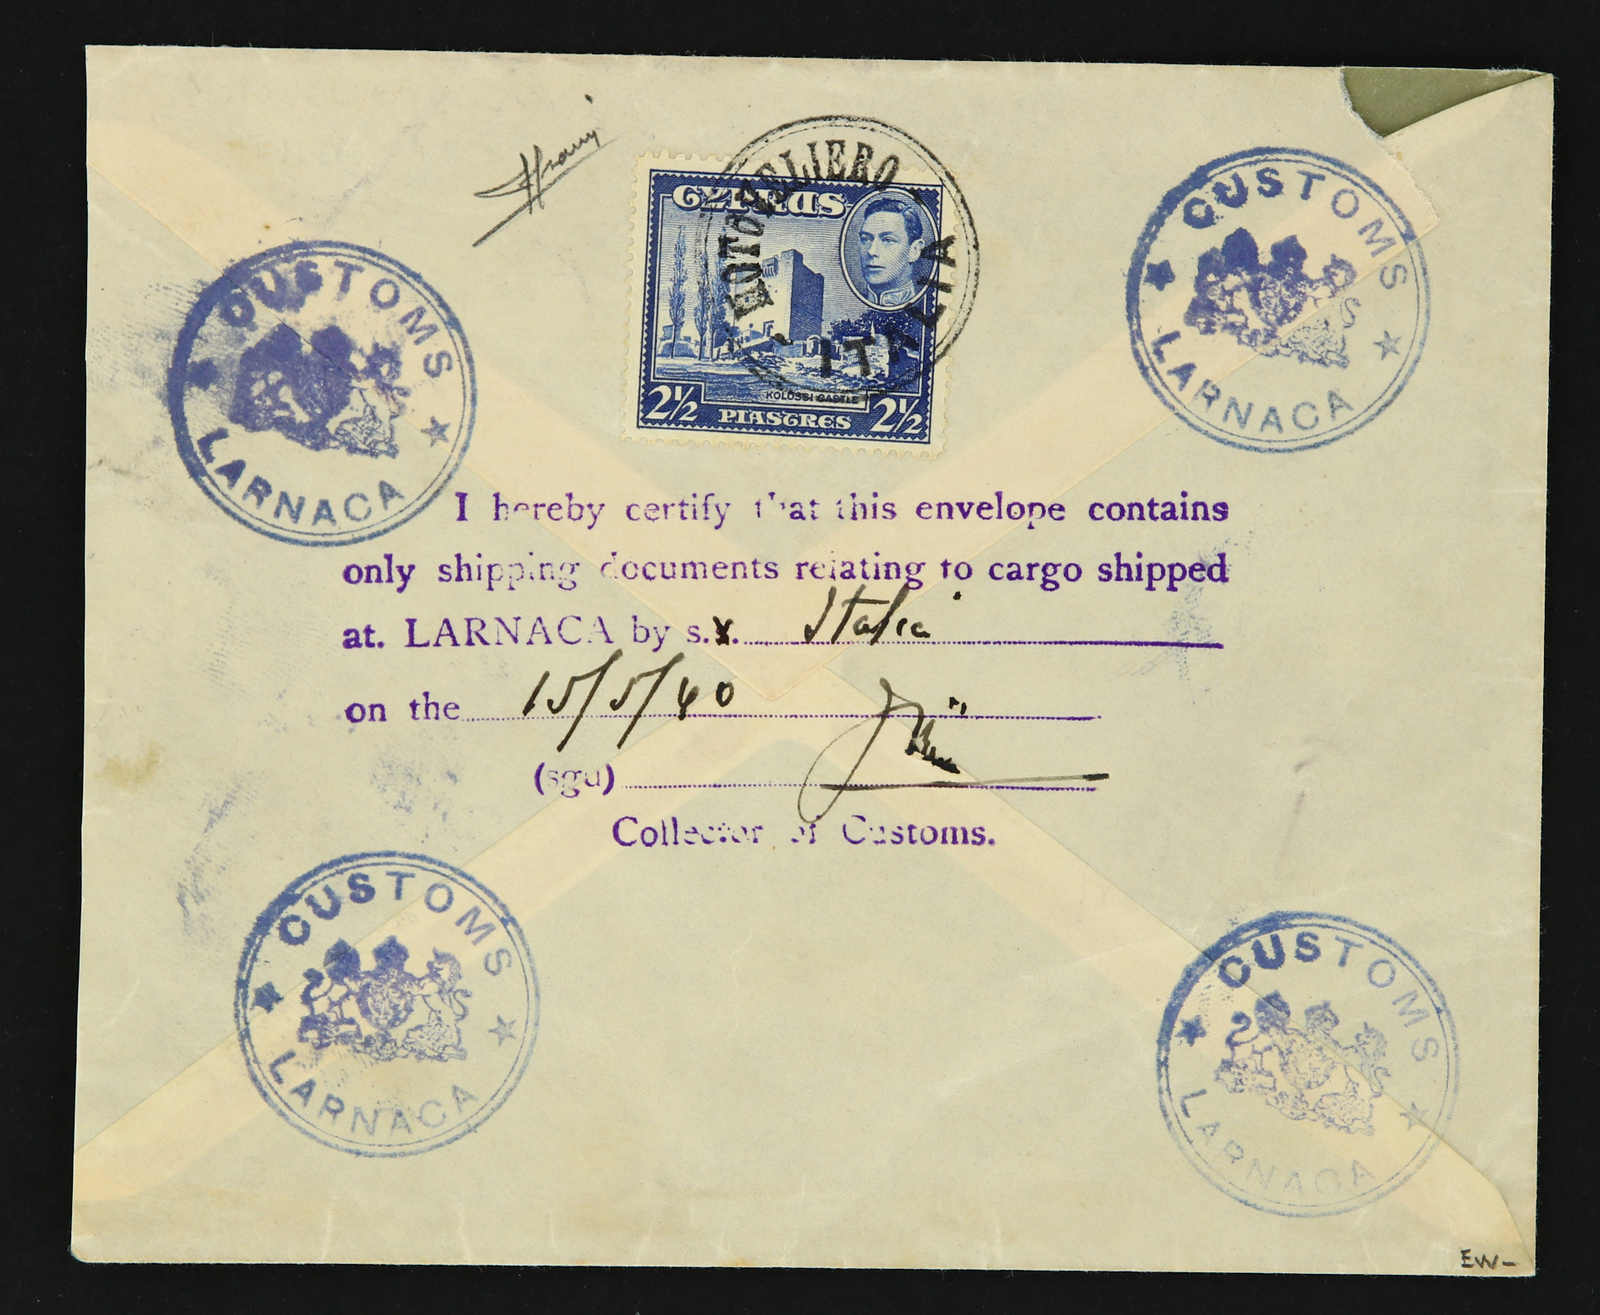 CYPRUS
MOTOVELIERO
ITALIA
KOLOSSI CASTLE
2½ PIASTRES 2½
CUSTOMS
LARNACA
CUSTOMS
LARNACA
I hereby certify that this envelope contains
only shipping documents relating to cargo shipped
at. LARNACA by s.v. Italia
on the 15/5/40
(sgd)
Collector of Customs.
CUSTOMS
LARNACA
CUSTOMS
LARNACA
EW-